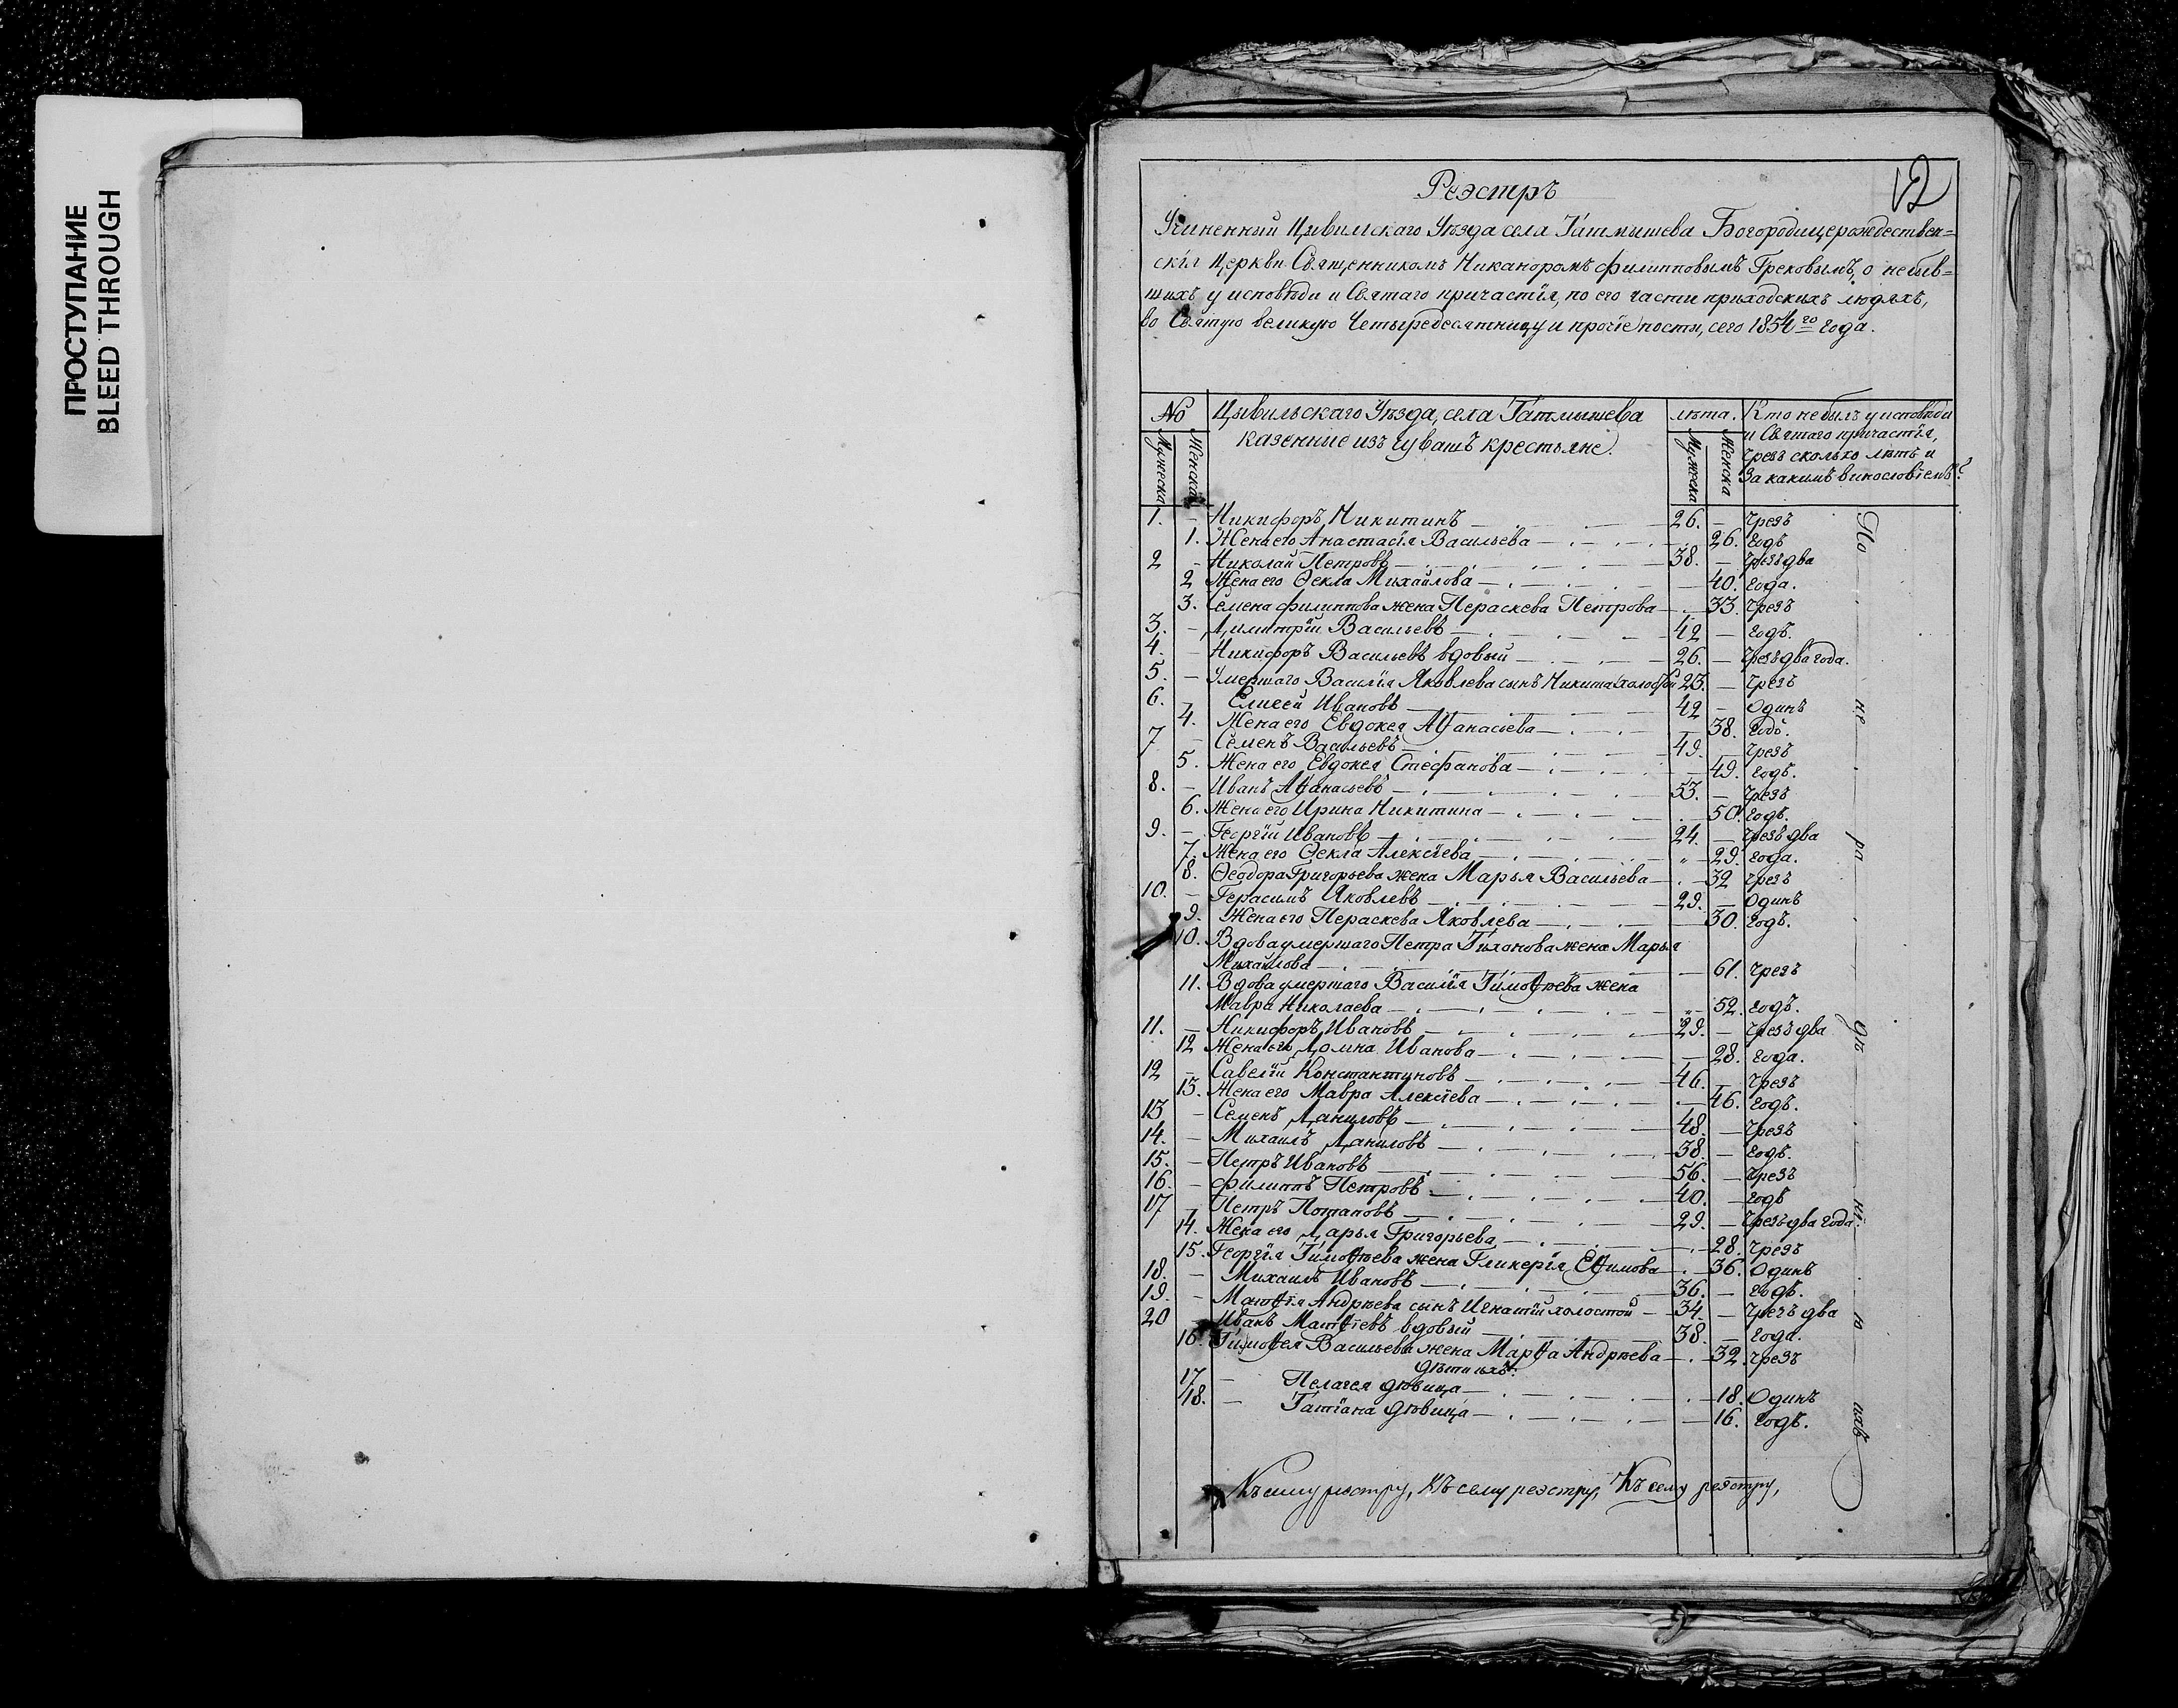 ПРОСТУПАНИЕ
BLEED THROUGH
12
Реэстръ
Учиненный Цывильскаго Уѣзда села Татмышева Богородицерождествен=
скія Церкви Священникомъ Никаноромъ Филипповымъ Грековымъ, о небыв=
шихъ у исповѣди и Святаго причастія, по его части приходскихъ людяхъ,
во Святую великую Четыредесятницу и прочіе посты, сего 1854го года.
№ Цывильскаго Уѣзда, села Татмышева лѣта. Кто небылъ у исповѣди
казенные изъ чувашъ крестьяне. и Святаго причастія,
Мужеска Женска Мужеска Женска чрезъ сколько лѣтъ и
За какимъ винословіемъ?
1. — Никифоръ Никитинъ 26. — Чрезъ
1. Жена его Анастасія Васильева 26. годъ
2 — Николай Петровъ 38. — Чрезъ два
2 Жена его Ѳекла Михайлова 40. года.
3. Семена Филиппова жена Пераскева Петрова 33. Чрезъ
3. — Димитрій Васильевъ 42 — годъ.
4. — Никифоръ Васильевъ вдовый 26. — Чрезъ два года.
5. — Умершаго Василія Яковлева сынъ Никита холостой 23. — Чрезъ
6. — Елисей Ивановъ 42 — Одинъ
4. Жена его Евдокея Аѳанасьева 38. годъ.
7 — Семенъ Васильевъ 49. — Чрезъ
5. Жена его Евдокея Стефанова 49. годъ.
8. — Иванъ Аѳанасьевъ 53. — Чрезъ
6. Жена его Ирина Никитина 50. годъ.
9. — Георгій Ивановъ 24. — Чрезъ два
7. Жена его Ѳекла Алексіева 29. года.
8. Ѳеодора Григорьева жена Марья Васильева 32 Чрезъ
10. — Герасимъ Яковлевъ 29. — Одинъ
9. Жена его Пераскева Яковлева 30. годъ.
10. Вдова умершаго Петра Тихонова жена Марья
Михайлова 61. Чрезъ
11. Вдова умершаго Василія Тимоѳѣева жена
Мавра Николаева 52. годъ.
11. — Никифоръ Ивановъ 29. — Чрезъ два
12 Жена его Домна Иванова 28. года.
12 — Савелій Константиновъ 46. — Чрезъ
13. Жена его Мавра Алексіева 46. годъ.
13 — Семенъ Даниловъ 48. — Чрезъ
14. — Михаилъ Даниловъ 38. — годъ.
15. — Петръ Ивановъ 56. — Чрезъ
16. — Филиппъ Петровъ 40. — годъ
17 — Петръ Потаповъ 29. — Чрезъ два года.
14. Жена его Дарья Григорьева 28. Чрезъ
15. Георгія Тимоѳѣева жена Гликерія Еѳимова 36. Одинъ
18. — Михаилъ Ивановъ 36. — годъ.
19. — Матѳія Андрѣева сынъ Игнатій холостой 34. — Чрезъ два
20 — Иванъ Матѳіевъ вдовый 38. — года.
16. Тимоѳея Васильева жена Марѳа Андрѣева 32. Чрезъ
дѣти ихъ:
17 — Пелагея дѣвица 18. Одинъ
18. — Татіана дѣвица 16. годъ.
По не ра дѣ ні ю ихъ
Къ сему реэстру, Къ сему реэстру, Къ сему реэстру,